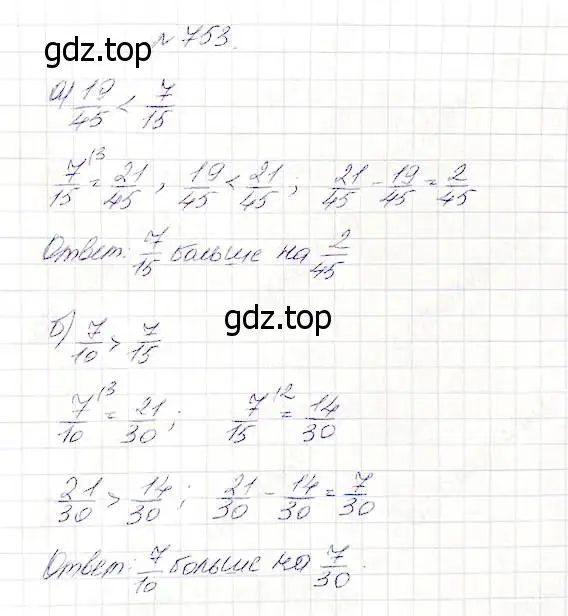 gdz.top
№ 753.
а) 19/45 < 7/15
7/15 \3 = 21/45, 19/45 < 21/45; 21/45 - 19/45 = 2/45
Ответ: 7/15 больше на 2/45
gdz.top
б) 7/10 > 7/15
7/10 \3 = 21/30; 7/15 \2 = 14/30
21/30 > 14/30; 21/30 - 14/30 = 7/30
Ответ: 7/10 больше на 7/30.
gdz.top